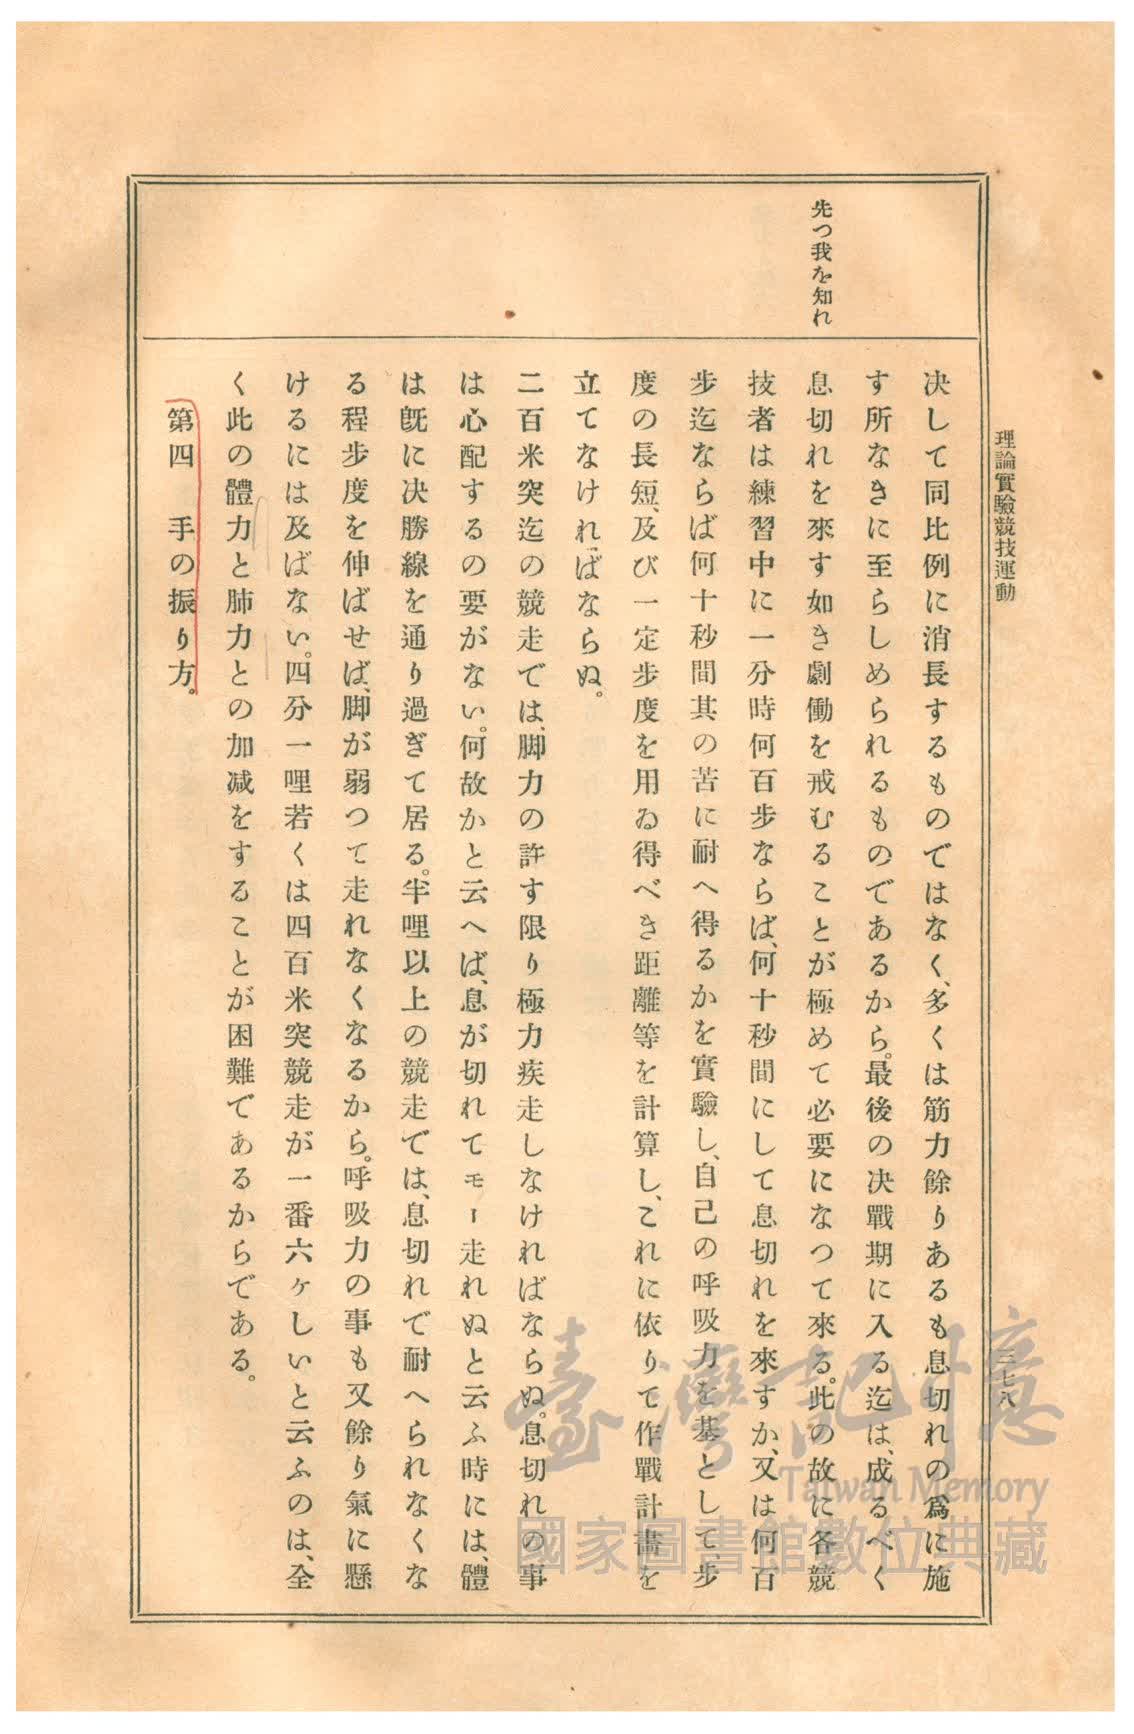 理論實驗競技運動
三七八
先つ我を知れ
決して同比例に消長するものではなく、多くは筋力餘りあるも息切れの爲に施
す所なきに至らしめられるものであるから。最後の決戰期に入る迄は、成るべく
息切れを來す如き劇働を戒むることが極めて必要になつて來る。此の故に各競
技者は練習中に一分時何百步ならば、何十秒間にして息切れを來すか、又は何百
步迄ならば何十秒間其の苦に耐へ得るかを實驗し、自己の呼吸力を基として、步
度の長短、及び一定步度を用ゐ得べき距離等を計算し、これに依りて作戰計畫を
立てなければならぬ。
二百米突迄の競走では、脚力の許す限り極力疾走しなければならぬ。息切れの事
は心配するの要がない。何故かと云へば、息が切れてモー走れぬと云ふ時には、體
は既に決勝線を通り過ぎて居る。半哩以上の競走では、息切れで耐へられなくな
る程步度を伸ばせば、脚が弱つて走れなくなるから。呼吸力の事も又餘り氣に懸
けるには及ばない。四分一哩若くは四百米突競走が一番六ケしいと云ふのは、全
く此の體力と肺力との加減をすることが困難であるからである。
第四 手の振り方。
臺灣記憶
Taiwan Memory
國家圖書館數位典藏